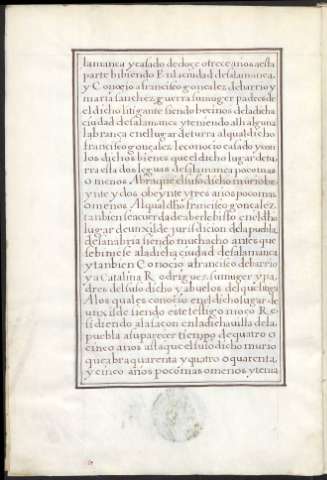 lamanca y casado de doçe o treçe años a esta
parte bibiendo En la ciudad de salamanca,
y Conoçio a francisco gonçalez de barrio y
maria sanchez, guerra su muger padres de
el dicho litigante siendo beçinos de la dicha
ciudad de salamanca y teniendo alli alguna
labrança en el lugar de turra al qual dicho
francisco gonçalez le conoçio casado y con
los dichos bienes que el dicho lugar de tu
rra esta dos leguas de salamanca poco mas
o menos Abra que el suso dicho murio be
ynte y dos o beynte y tres años poco mas
o menos Al qual dho francisco gonçalez
tanbien se acuerda de aberle bisto en el dho
lugar de unxilde jurisdicion de la puebla
de sanabria siendo muchacho antes que
se biniese a la dicha ciudad de salamanca
y tanbien Conoçio a francisco de barrio
y a Catalina Rodriguez su muger y pa
dres del suso dicho y abuelos del que litiga
A los quales conoçio en el dicho lugar de
unxilde siendo este testigo moço Re
sidiendo a la saçon en la dicha villa de la
puebla a su pareçer tiempo de quatro o
cinco años asta que el suso dicho murio
que abra quarenta y quatro o quarenta
y cinco años poco mas o menos y tenia